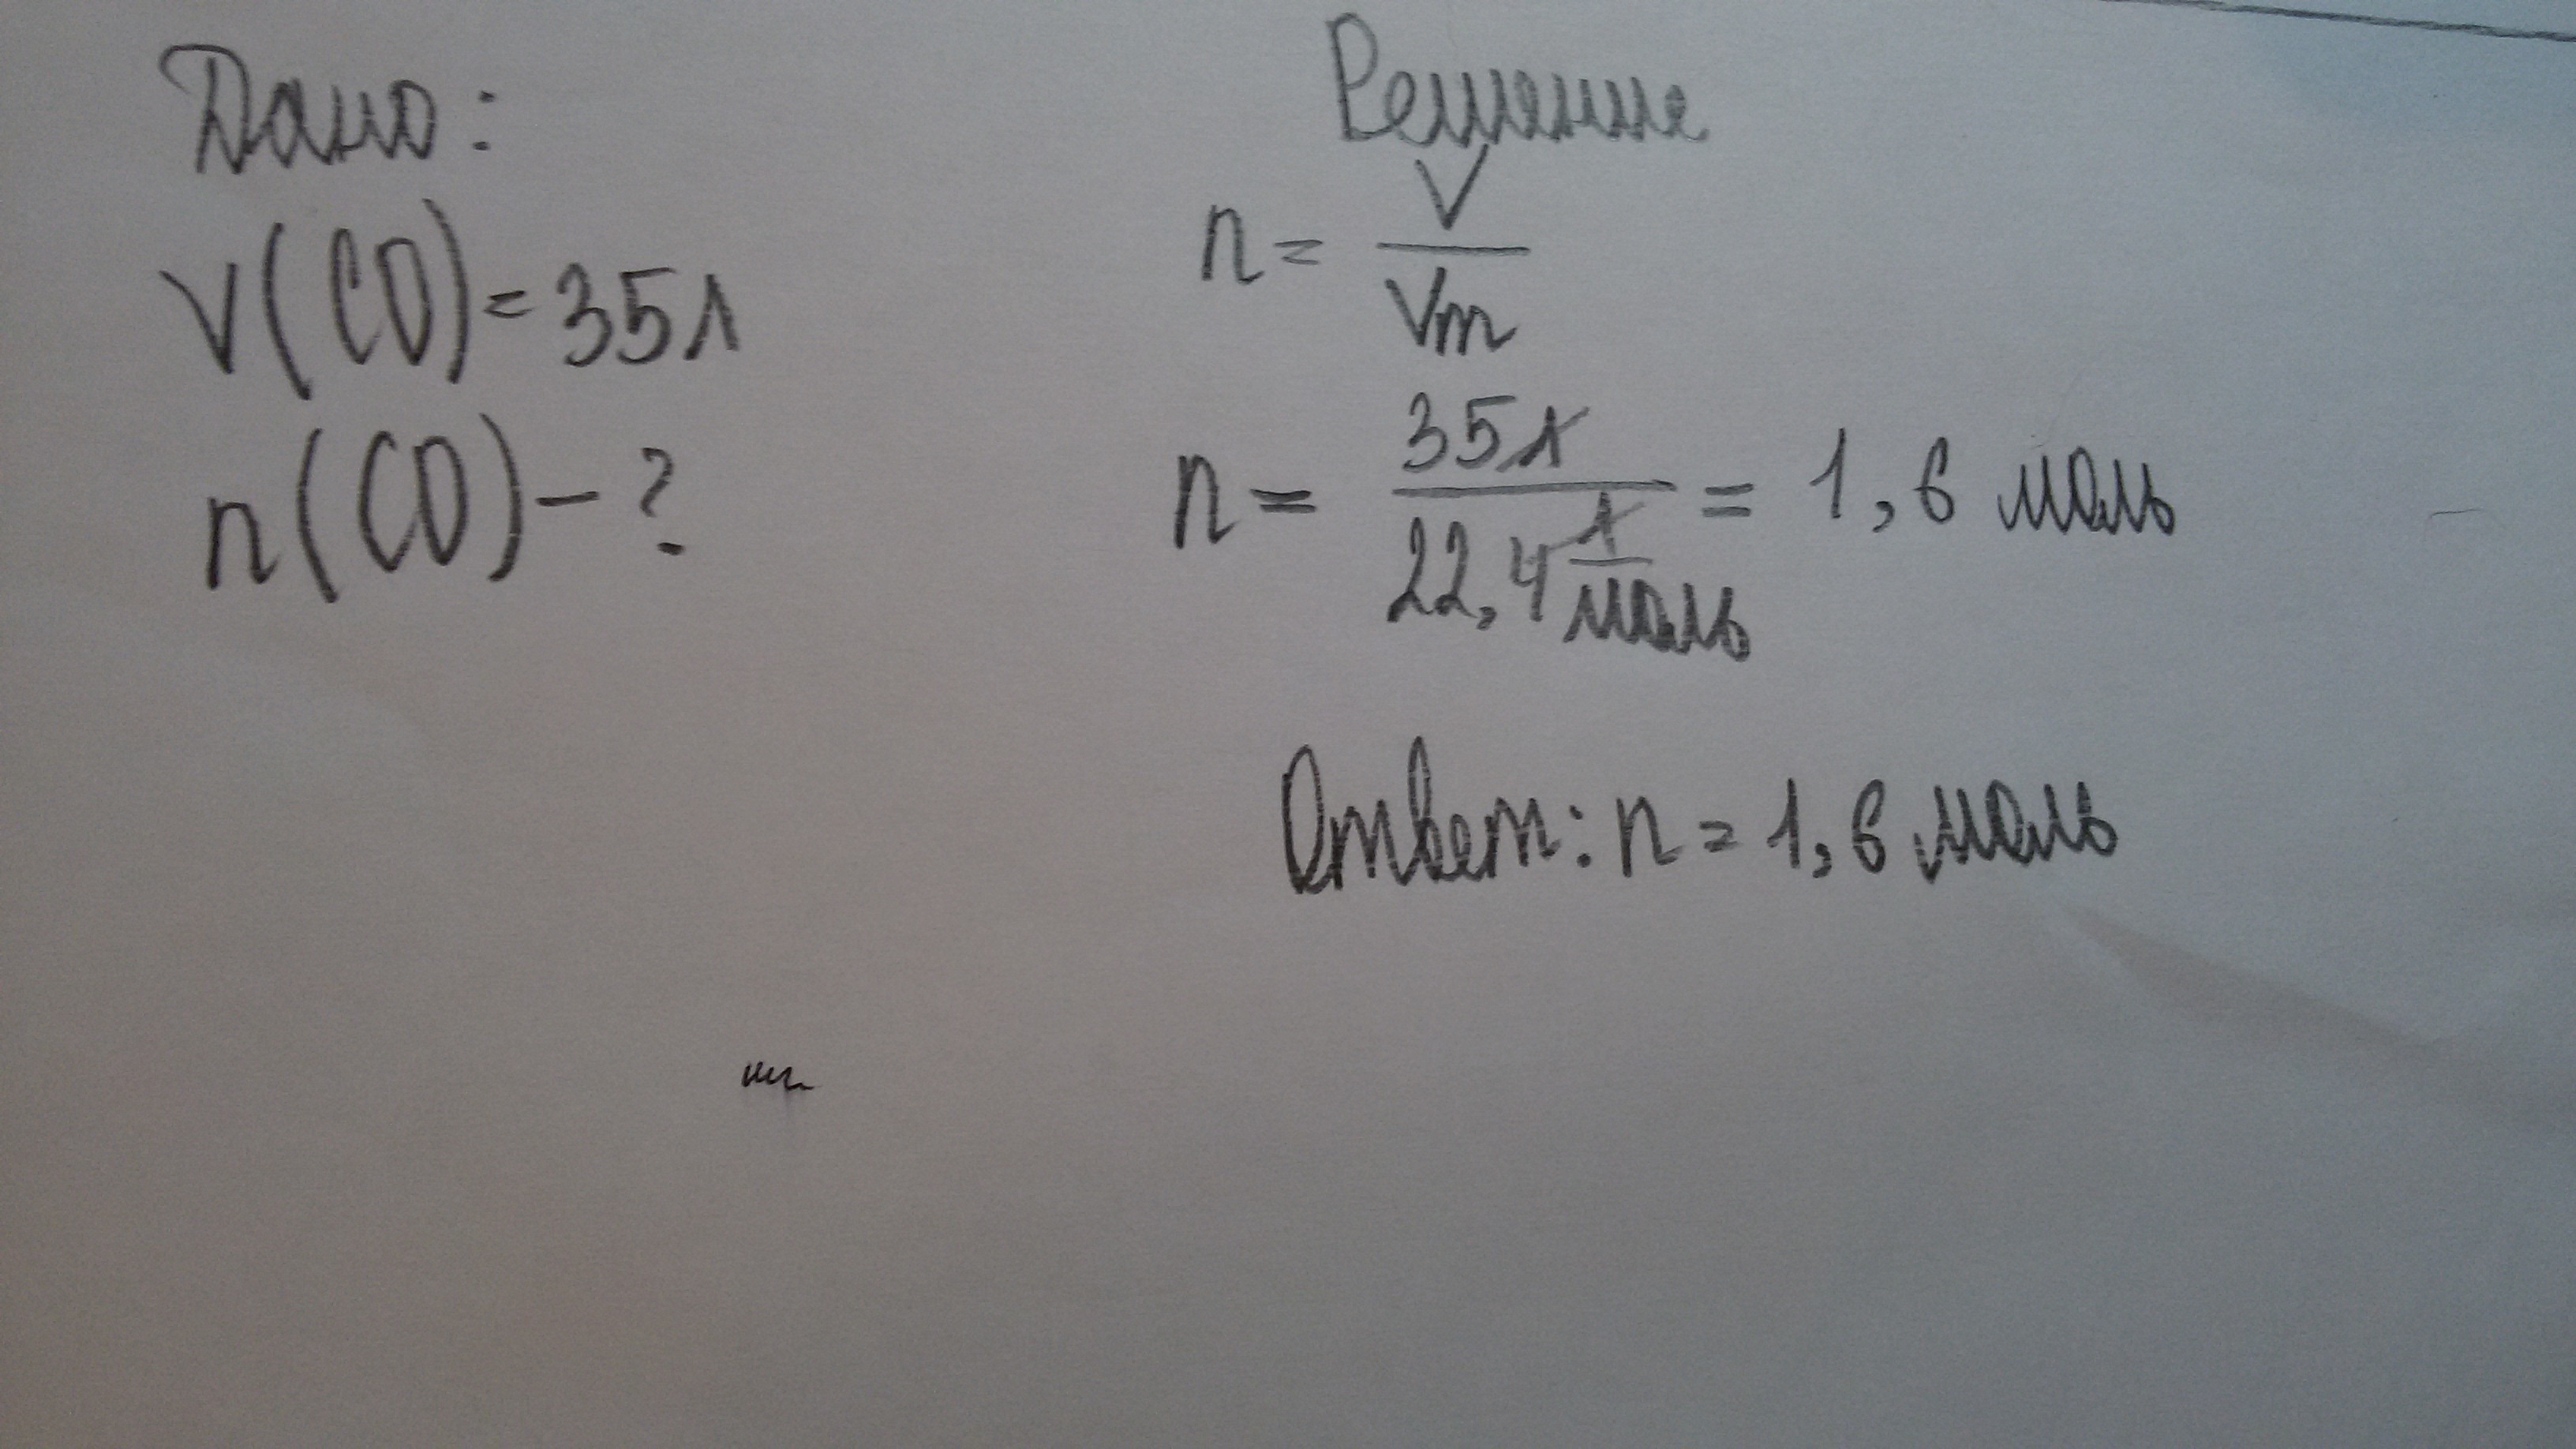 Дано:
V(CO)=35л
n(CO)-?
Решение
n= V/Vm
n= 35л/22,4 л/моль = 1,6 моль
Ответ: n=1,6 моль